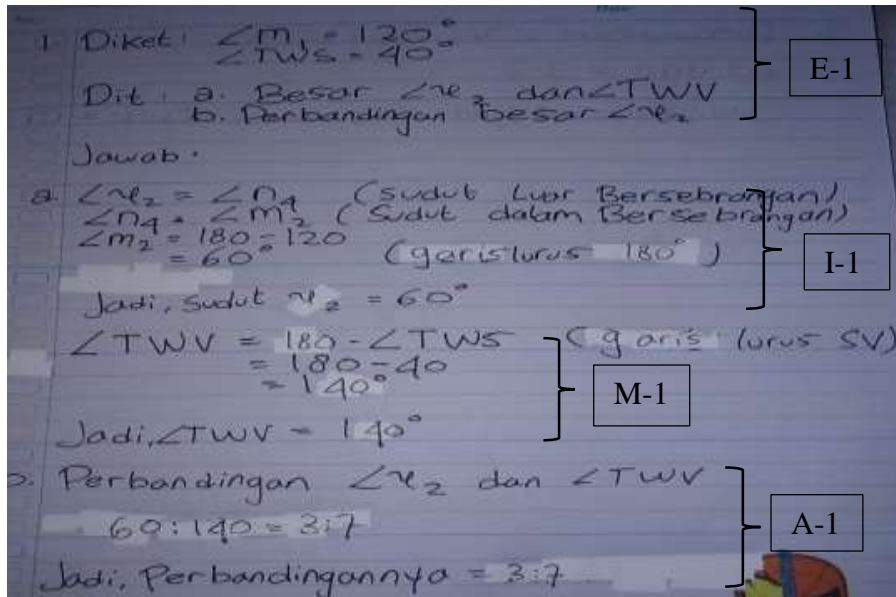 1. Diket : ∠m₁ = 120°
∠TWS = 40°
E-1
Dit : a. Besar ∠r₂ dan ∠TWV
b. Perbandingan besar ∠r₂
Jawab :
a. ∠r₂ = ∠n₄ (Sudut Luar Bersebrangan)
∠n₄ = ∠m₂ (Sudut dalam Bersebrangan)
∠m₂ = 180 - 120
= 60° (garis lurus 180°)
I-1
Jadi, sudut r₂ = 60°
∠TWV = 180 - ∠TWS (garis lurus SV)
= 180 - 40
= 140°
M-1
Jadi, ∠TWV = 140°
b. Perbandingan ∠r₂ dan ∠TWV
60 : 140 = 3:7
A-1
Jadi, Perbandingannya = 3:7